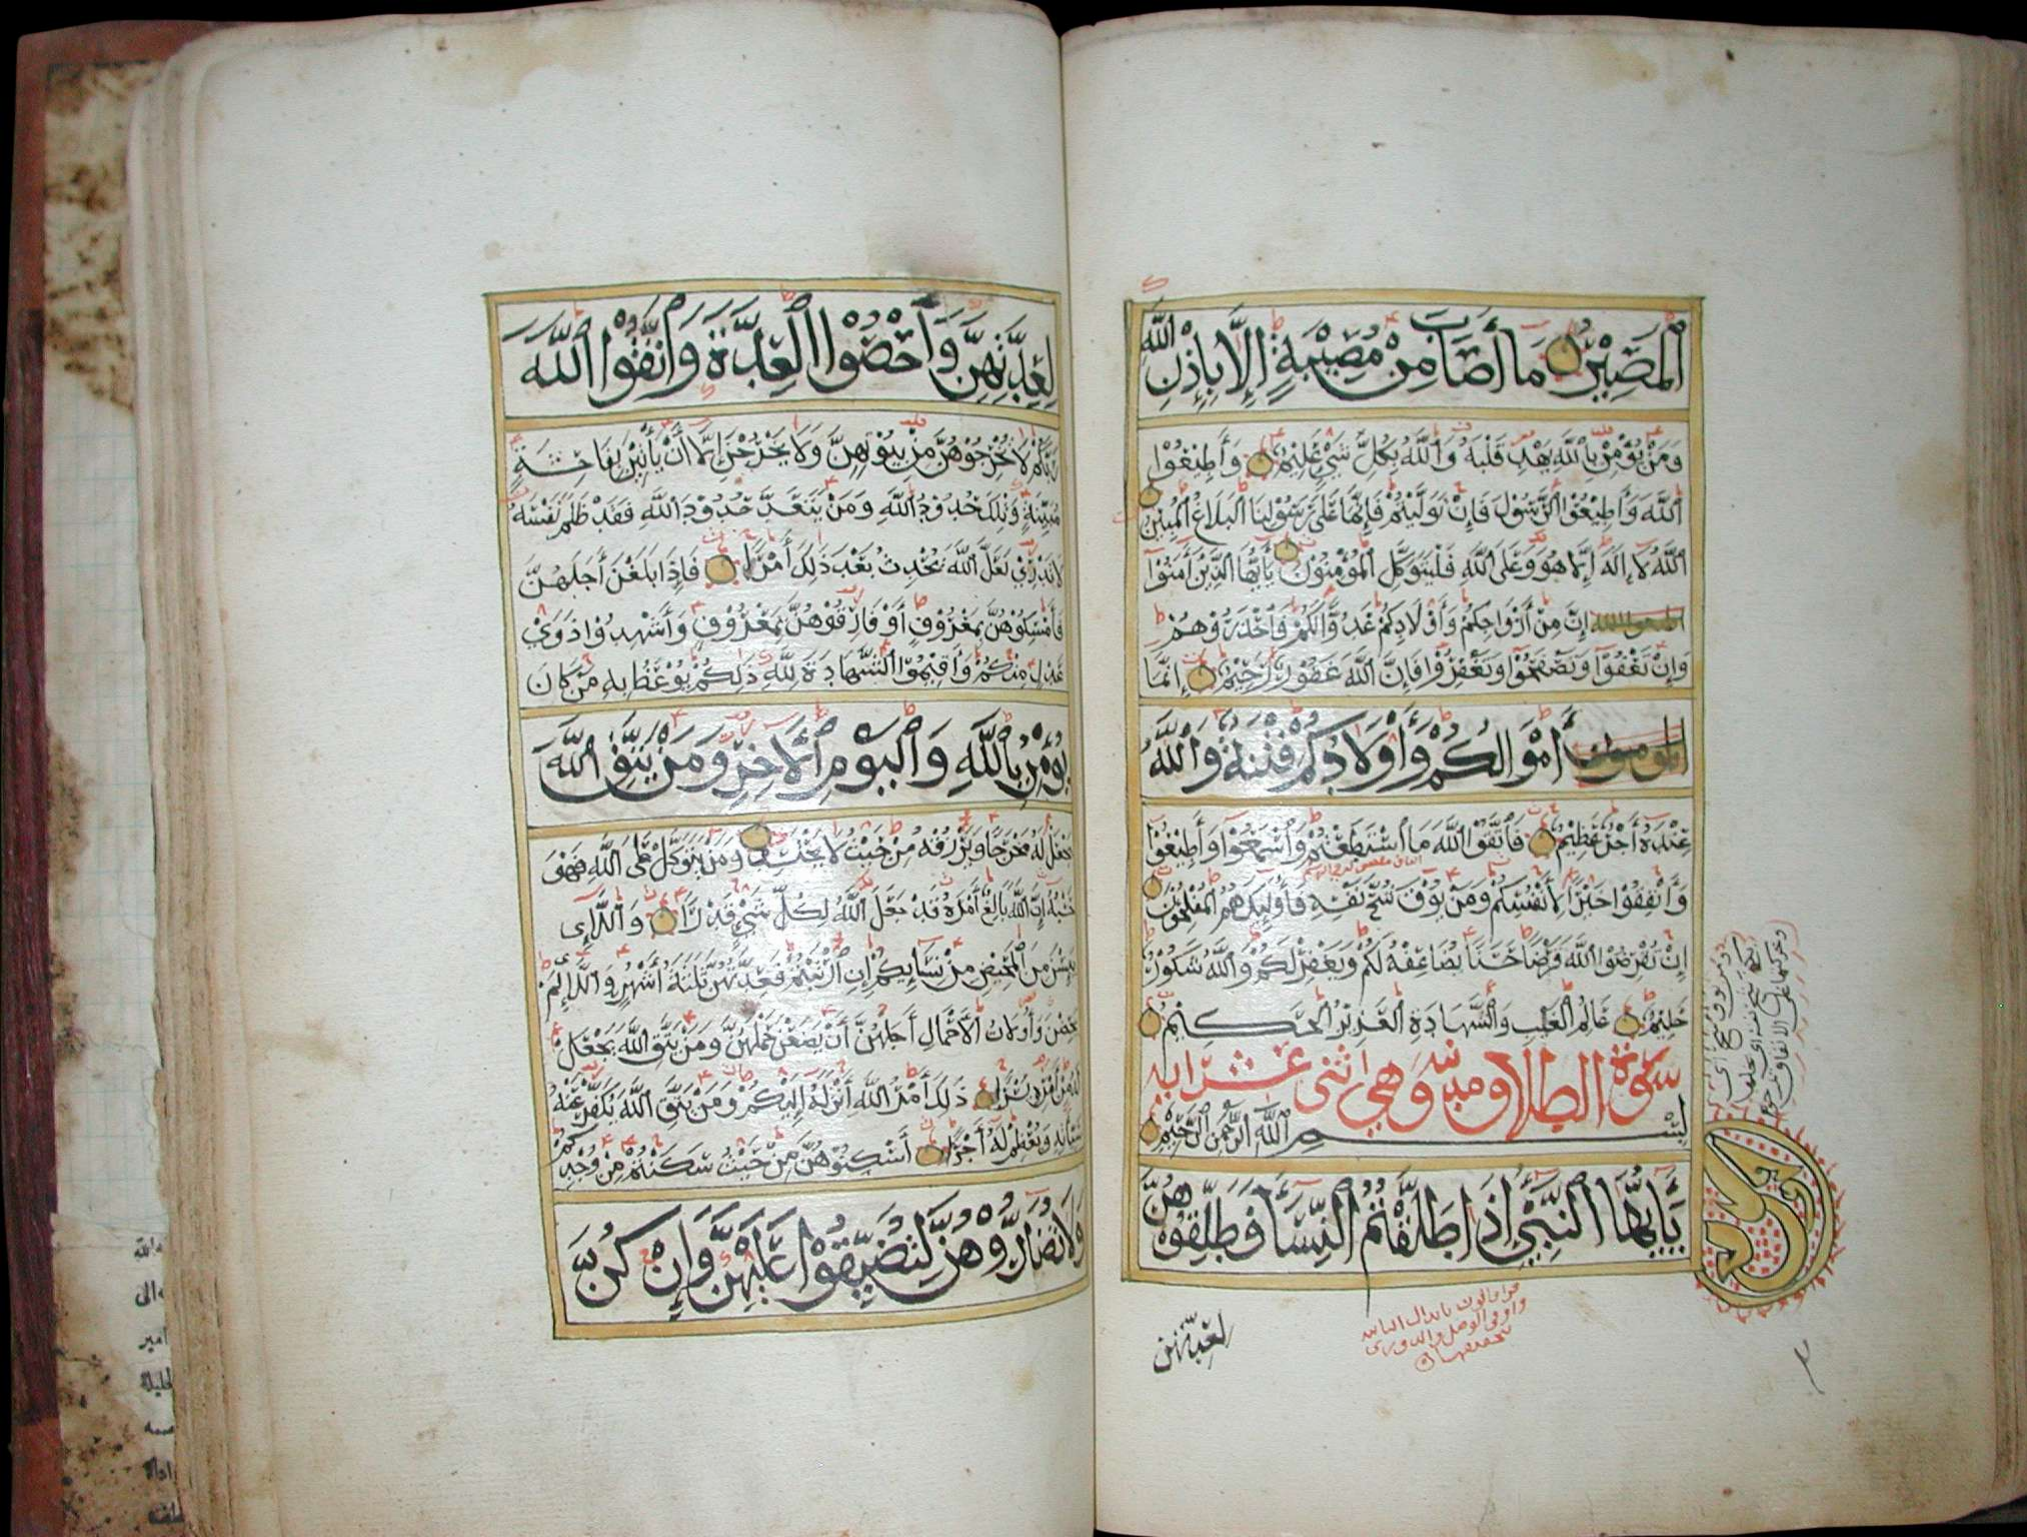 ٱلْمَصِيْرُ مَا أَصَابَ مِنْ مُصِيْبَةٍ إِلَّا بِإِذْنِ اللهِ
وَمَنْ يُؤْمِنْ بِاللَّهِ يَهْدِ قَلْبَهُ وَاللَّهُ بِكُلِّ شَيْءٍ عَلِيْمٌ وَأَطِيْعُوْا
اللَّهَ وَأَطِيْعُوْا الرَّسُوْلَ فَإِنْ تَوَلَّيْتُمْ فَإِنَّمَا عَلَى رَسُوْلِنَا الْبَلَاغُ الْمُبِيْنُ
اللَّهُ لَا إِلَهَ إِلَّا هُوَ وَعَلَى اللَّهِ فَلْيَتَوَكَّلِ الْمُؤْمِنُوْنَ يَأَيُّهَا الَّذِيْنَ آمَنُوْا
إِنَّ مِنْ أَزْوَاجِكُمْ وَأَوْلَادِكُمْ عَدُوًّا لَكُمْ فَاحْذَرُوْهُمْ
وَإِنْ تَعْفُوْا وَتَصْفَحُوْا وَتَغْفِرُوْا فَإِنَّ اللَّهَ غَفُوْرٌ رَحِيْمٌ إِنَّمَا
أَمْوَالُكُمْ وَأَوْلَادُكُمْ فِتْنَةٌ وَاللَّهُ
عِنْدَهُ أَجْرٌ عَظِيْمٌ فَاتَّقُوْا اللَّهَ مَا اسْتَطَعْتُمْ وَاسْمَعُوْا وَأَطِيْعُوْا
وَأَنْفِقُوْا خَيْرًا لِأَنْفُسِكُمْ وَمَنْ يُوْقَ شُحَّ نَفْسِهِ فَأُولَئِكَ هُمُ الْمُفْلِحُوْنَ
إِنْ تُقْرِضُوْا اللَّهَ قَرْضًا حَسَنًا يُضَاعِفْهُ لَكُمْ وَيَغْفِرْ لَكُمْ وَاللَّهُ شَكُوْرٌ
حَلِيْمٌ عَالِمُ الْغَيْبِ وَالشَّهَادَةِ الْعَزِيْزُ الْحَكِيْمُ
سورة الطلاق مدنية وهي اثنى عشر اية
بِسْمِ اللَّهِ الرَّحْمَنِ الرَّحِيْمِ
يَأَيُّهَا النَّبِيُّ إِذَا طَلَّقْتُمُ النِّسَاءَ فَطَلِّقُوْهُنَّ
لعدتهن
لِعِدَّتِهِنَّ وَأَحْصُوْا الْعِدَّةَ وَاتَّقُوْا اللَّهَ
رَبَّكُمْ لَا تُخْرِجُوْهُنَّ مِنْ بُيُوْتِهِنَّ وَلَا يَخْرُجْنَ إِلَّا أَنْ يَأْتِيْنَ بِفَاحِشَةٍ
مُبَيِّنَةٍ وَتِلْكَ حُدُوْدُ اللَّهِ وَمَنْ يَتَعَدَّ حُدُوْدَ اللَّهِ فَقَدْ ظَلَمَ نَفْسَهُ
لَا تَدْرِيْ لَعَلَّ اللَّهَ يُحْدِثُ بَعْدَ ذَلِكَ أَمْرًا فَإِذَا بَلَغْنَ أَجَلَهُنَّ
فَأَمْسِكُوْهُنَّ بِمَعْرُوْفٍ أَوْ فَارِقُوْهُنَّ بِمَعْرُوْفٍ وَأَشْهِدُوْا ذَوَيْ
عَدْلٍ مِنْكُمْ وَأَقِيْمُوْا الشَّهَادَةَ لِلَّهِ ذَلِكُمْ يُوْعَظُ بِهِ مَنْ كَانَ
يُؤْمِنُ بِاللَّهِ وَالْيَوْمِ الْآخِرِ وَمَنْ يَتَّقِ اللَّهَ
يَجْعَلْ لَهُ مَخْرَجًا وَيَرْزُقْهُ مِنْ حَيْثُ لَا يَحْتَسِبُ وَمَنْ يَتَوَكَّلْ عَلَى اللَّهِ فَهْوَ
حَسْبُهُ إِنَّ اللَّهَ بَالِغٌ أَمْرَهُ قَدْ جَعَلَ اللَّهُ لِكُلِّ شَيْءٍ قَدْرًا وَاللَّاءِى
يَئِسْنَ مِنَ الْمَحِيْضِ مِنْ نِسَائِكُمْ إِنِ ارْتَبْتُمْ فَعِدَّتُهُنَّ ثَلَثَةُ أَشْهُرٍ وَاللَّاءِ لَمْ
يَحِضْنَ وَأُولَاتُ الْأَحْمَالِ أَجَلُهُنَّ أَنْ يَضَعْنَ حَمْلَهُنَّ وَمَنْ يَتَّقِ اللَّهَ يَجْعَلْ
لَهُ مِنْ أَمْرِهِ يُسْرًا ذَلِكَ أَمْرُ اللَّهِ أَنْزَلَهُ إِلَيْكُمْ وَمَنْ يَتَّقِ اللَّهَ يُكَفِّرْ عَنْهُ
سَيِّئَاتِهِ وَيُعْظِمْ لَهُ أَجْرًا أَسْكِنُوْهُنَّ مِنْ حَيْثُ سَكَنْتُمْ مِنْ وُجْدِكُمْ
وَلَا تُضَارُّوْهُنَّ لِتُضَيِّقُوْا عَلَيْهِنَّ وَإِنْ كُنَّ